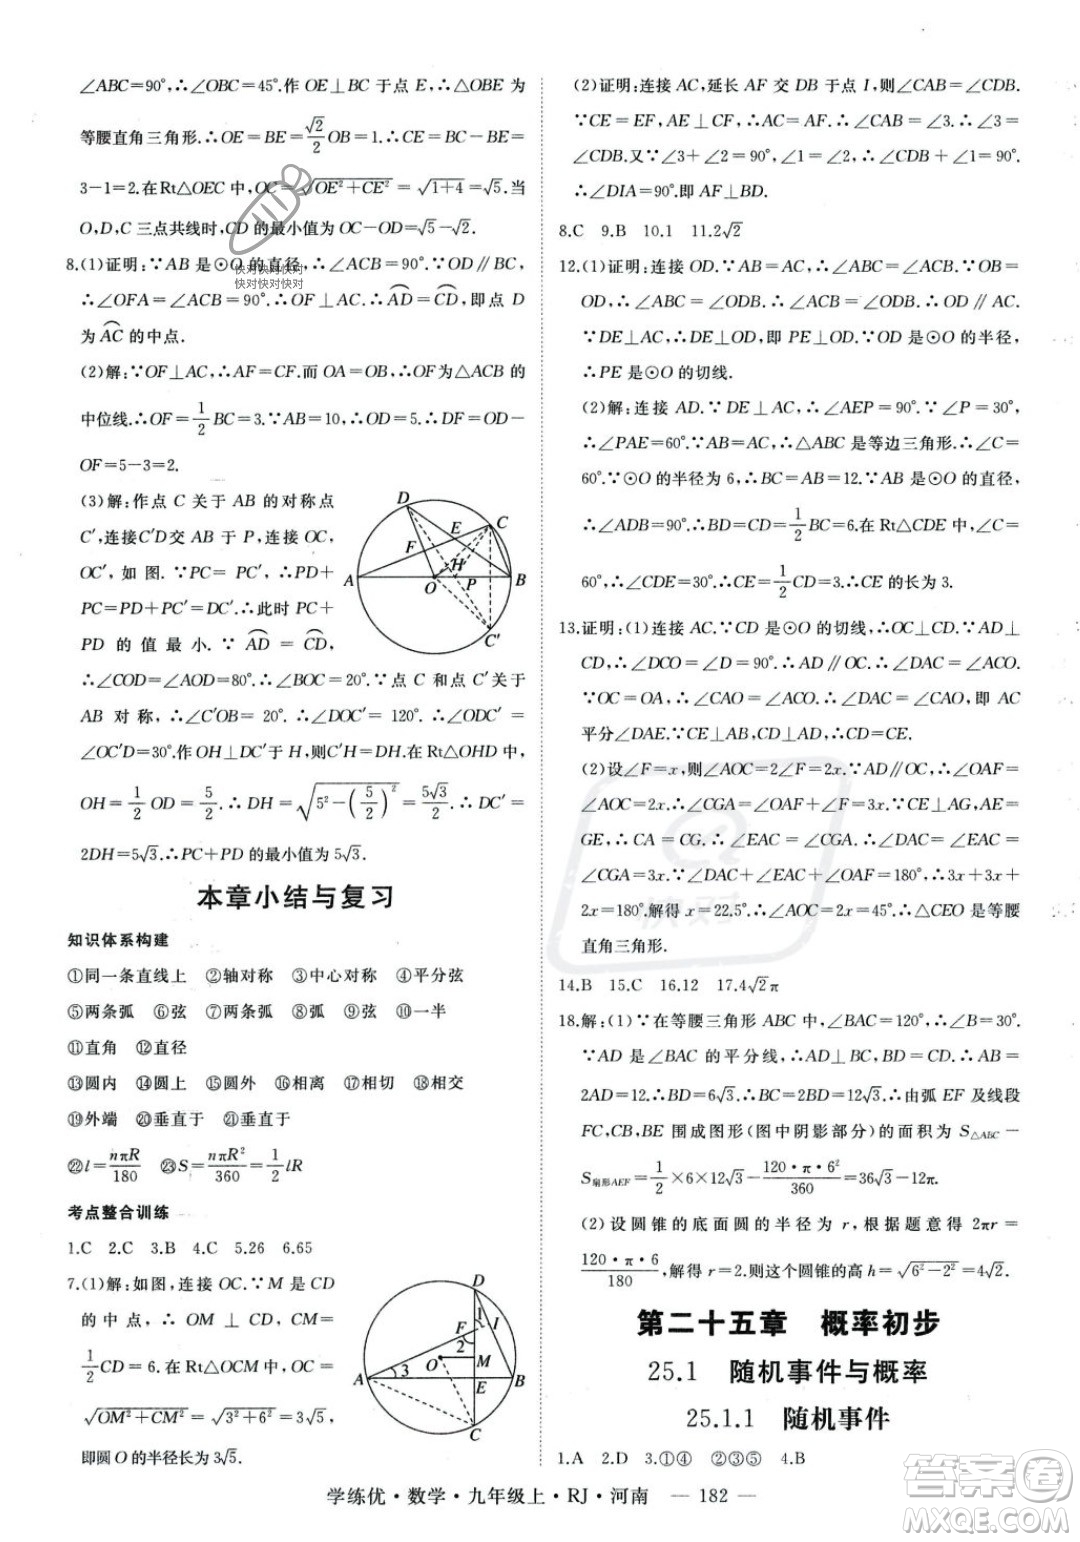 ∠ABC=90°.∴∠OBC=45°.作 OE⊥BC 于点 E.∴△OBE 为
等腰直角三角形.∴OE=BE=√2/2 OB=1.∴CE=BC-BE=
3-1=2.在Rt△OEC 中,OC=√(OE²+CE²)=√(1+4)=√5.当
O,D,C 三点共线时,CD 的最小值为 OC-OD=√5-√2.
8.(1)证明:∵AB 是⊙O 的直径,∴∠ACB=90°.∵OD∥BC,
∴∠OFA=∠ACB=90°.∴OF⊥AC.∴⌒AD=⌒CD,即点 D
为⌒AC 的中点.
(2)解:∵OF⊥AC,∴AF=CF.而 OA=OB,∴OF 为△ACB 的
中位线.∴OF=1/2 BC=3.∵AB=10,∴OD=5.∴DF=OD-
OF=5-3=2.
(3)解:作点 C 关于 AB 的对称点
C′,连接C′D交 AB 于 P,连接 OC,
OC′,如图.∵PC=PC′,∴PD+
PC=PD+PC′=DC′.∴此时 PC+
PD 的值最小.∵⌒AD=⌒CD,
∴∠COD=∠AOD=80°.∴∠BOC=20°.∵点 C 和点 C′关于
AB 对称,∴∠C′OB=20°.∴∠DOC′=120°.∴∠ODC′=
∠OC′D=30°.作 OH⊥DC′于 H,则C′H=DH.在Rt△OHD 中,
OH=1/2 OD=5/2.∴DH=√(5²-(5/2)²)=5√3/2.∴DC′=
2DH=5√3.∴PC+PD 的最小值为 5√3.
D
E
C
F
H
A
O
P
B
C′
本章小结与复习
知识体系构建
①同一条直线上 ②轴对称 ③中心对称 ④平分弦
⑤两条弧 ⑥弦 ⑦两条弧 ⑧弧 ⑨弦 ⑩一半
⑪直角 ⑫直径
⑬圆内 ⑭圆上 ⑮圆外 ⑯相离 ⑰相切 ⑱相交
⑲外端 ⑳垂直于 ㉑垂直于
㉒l=nπR/180 ㉓S=nπR²/360=1/2 lR
考点整合训练
1.C 2.C 3.B 4.C 5.26 6.65
7.(1)解:如图,连接 OC.∵M 是 CD
的中点,∴OM⊥CD,CM=
1/2 CD=6.在Rt△OCM 中,OC=
√(OM²+CM²)=√(3²+6²)=3√5,
即圆 O 的半径长为 3√5.
D
1
F
I
2
O
M
3
A
E
B
C
(2)证明:连接 AC,延长 AF 交 DB 于点 I,∴∠CAB=∠CDB.
∵CE=EF,AE⊥CF,∴AC=AF.∴∠CAB=∠3.∴∠3=
∠CDB.又∵∠3+∠2=90°,∠1=∠2,∴∠CDB+∠1=90°.
∴∠DIA=90°.即 AF⊥BD.
8.C 9.B 10.1 11.2√2
12.(1)证明:连接 OD.∵AB=AC,∴∠ABC=∠ACB.∵OB=
OD,∴∠ABC=∠ODB.∴∠ACB=∠ODB.∴OD∥AC.
∵DE⊥AC,∴DE⊥OD,即 PE⊥OD.∵OD是⊙O 的半径,
∴PE 是⊙O 的切线.
(2)解:连接 AD.∵DE⊥AC,∴∠AEP=90°.∵∠P=30°,
∴∠PAE=60°.∵AB=AC,∴△ABC 是等边三角形.∴∠C=
60°.∵⊙O 的半径为 6,∴BC=AB=12.∵AB 是⊙O 的直径,
∴∠ADB=90°.∴BD=CD=1/2 BC=6.在Rt△CDE 中,∠C=
60°,∴∠CDE=30°.∴CE=1/2 CD=3.∴CE 的长为 3.
13.证明:(1)连接 AC.∵CD 是⊙O 的切线,∴OC⊥CD.∵AD⊥
CD,∴∠DCO=∠D=90°.∴AD∥OC.∴∠DAC=∠ACO.
∵OC=OA,∴∠CAO=∠ACO.∴∠DAC=∠CAO,即 AC
平分∠DAE.∵CE⊥AB,CD⊥AD,∴CD=CE.
(2)设∠F=x,则∠AOC=2∠F=2x.∵AD∥OC,∴∠OAF=
∠AOC=2x.∴∠CGA=∠OAF+∠F=3x.∵CE⊥AG,AE=
GE,∴CA=CG.∴∠EAC=∠CGA=3x.∴∠DAC=∠EAC=
∠CGA=3x.∵∠DAC+∠EAC+∠OAF=180°,∴3x+3x+
2x=180°.解得 x=22.5°.∴∠AOC=2x=45°.∴△CEO 是等腰
直角三角形.
14.B 15.C 16.12 17.4√2π
18.解:(1)∵在等腰三角形 ABC 中,∠BAC=120°,∴∠B=30°.
∵AD 是∠BAC 的平分线,∴AD⊥BC,BD=CD.∴AB=
2AD=12.∴BD=6√3.∴BC=2BD=12√3.∴由弧 EF 及线段
FC,CB,BE 围成图形(图中阴影部分)的面积为 S△ABC-
S扇形AEF=1/2×6×12√3-120·π·6²/360=36√3-12π.
(2)设圆锥的底面圆的半径为 r,根据题意得 2πr=
120·π·6/180,解得 r=2.则这个圆锥的高 h=√(6²-2²)=4√2.
第二十五章 概率初步
25.1 随机事件与概率
25.1.1 随机事件
1.A 2.D 3.①④ ②③⑤ 4.B
学练优·数学·九年级上·RJ·河南 — 182 —
快对快对快对
快对快对快对
快对
答案圈
MXQE.COM